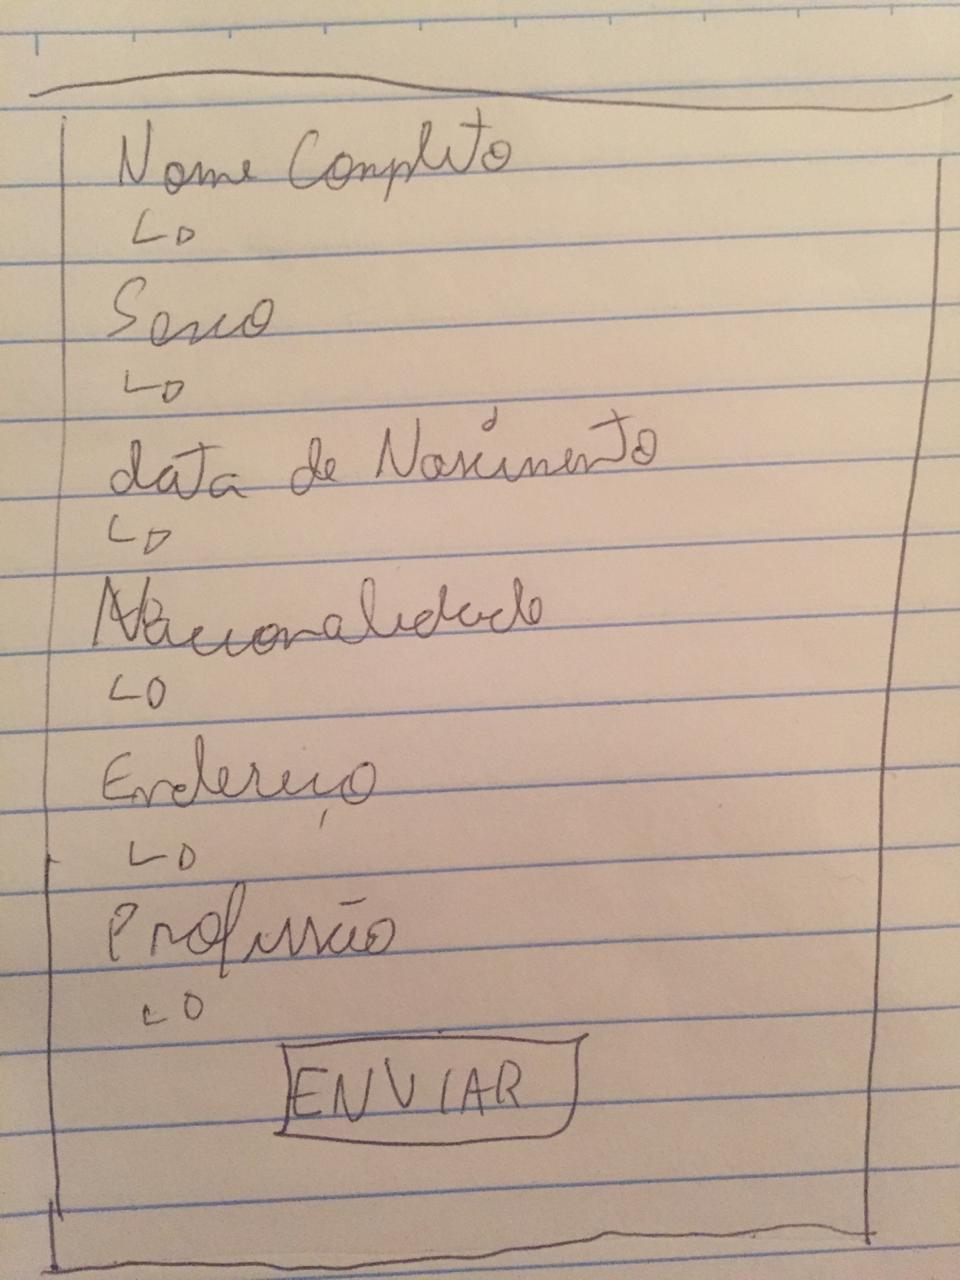 Nome Completo
Sexo
data de Nascimento
Nacionalidade
Endereço
Profissão
ENVIAR